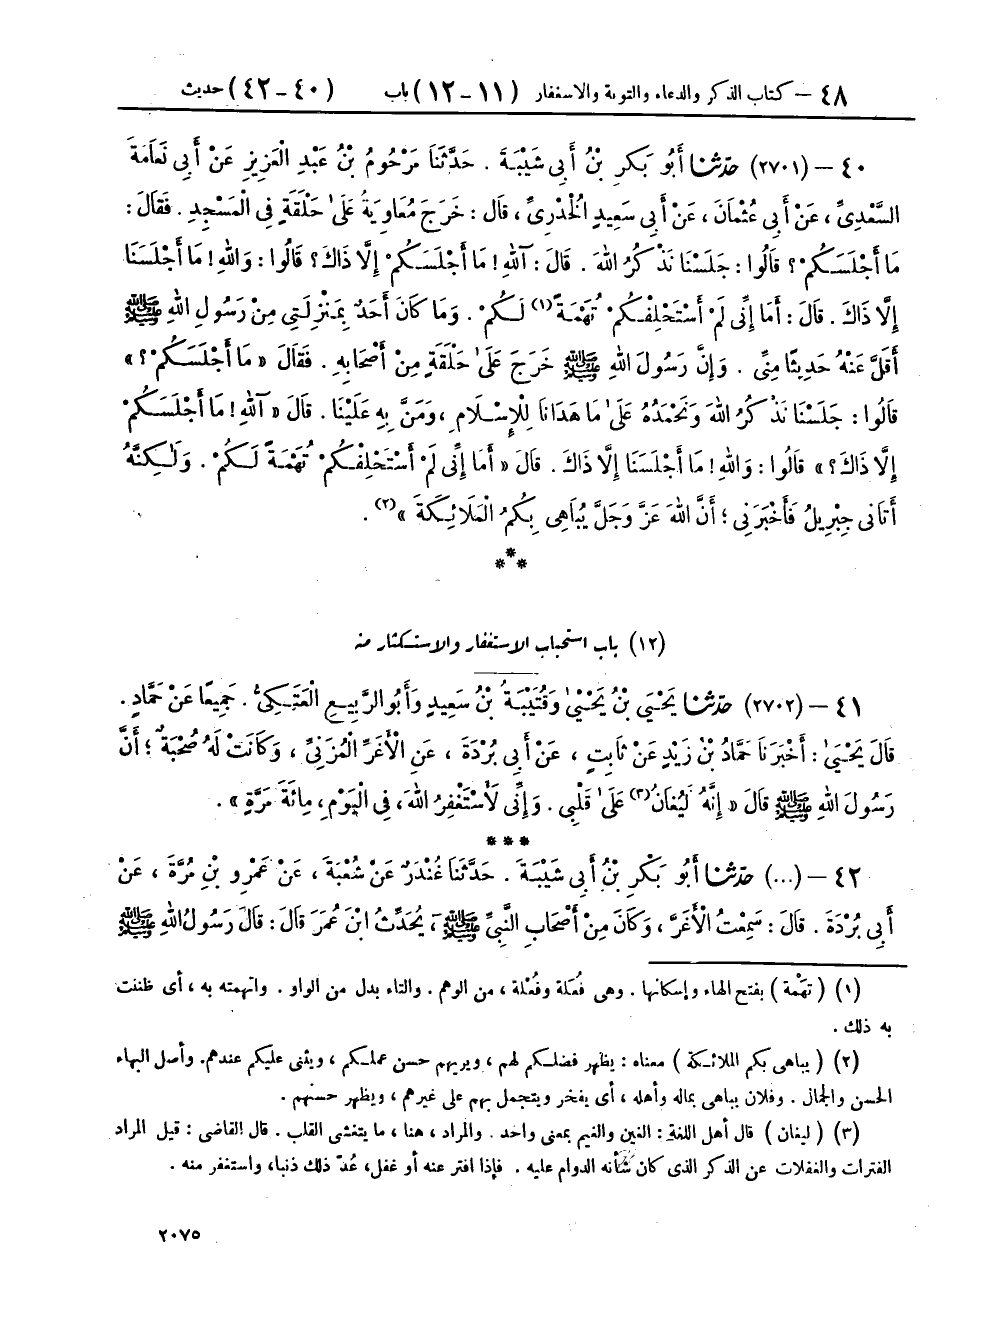 ٤٨ – كتاب الذكر والدعاء والتوبة والاستغفار (١١-١٢) باب (٤٠-٤٢) حديث
٤٠ – (٢٧٠١) حدّثنا أَبُو بَكْرِ بْنُ أَبِي شَيْبَةَ . حَدَّثَنَا مَرْحُومُ بْنُ عَبْدِ الْعَزِيزِ عَنْ أَبِي نَعَامَةَ
السَّعْدِيِّ ، عَنْ أَبِي عُثْمَانَ ، عَنْ أَبِي سَعِيدٍ الْخُدْرِيِّ ، قَالَ : خَرَجَ مُعَاوِيَةُ عَلَىٰ حَلْقَةٍ فِي الْمَسْجِدِ . فَقَالَ :
مَا أَجْلَسَكُمْ ؟ قَالُوا : جَلَسْنَا نَذْكُرُ اللهَ . قَالَ : آللهِ ! مَا أَجْلَسَكُمْ إِلَّا ذَاكَ ؟ قَالُوا : وَاللهِ ! مَا أَجْلَسَنَا
إِلَّا ذَاكَ . قَالَ : أَمَا إِنِّي لَمْ أَسْتَحْلِفْكُمْ تُهْمَةً (١) لَكُمْ . وَمَا كَانَ أَحَدٌ بِمَنْزِلَتِي مِنْ رَسُولِ اللهِ ﷺ
أَقَلَّ عَنْهُ حَدِيثًا مِنِّي . وَإِنَّ رَسُولَ اللهِ ﷺ خَرَجَ عَلَىٰ حَلْقَةٍ مِنْ أَصْحَابِهِ . فَقَالَ « مَا أَجْلَسَكُمْ ؟ »
قَالُوا : جَلَسْنَا نَذْكُرُ اللهَ وَنَحْمَدُهُ عَلَىٰ مَا هَدَانَا لِلْإِسْلَامِ ، وَمَنَّ بِهِ عَلَيْنَا . قَالَ « آللهِ ! مَا أَجْلَسَكُمْ
إِلَّا ذَاكَ ؟ » قَالُوا : وَاللهِ ! مَا أَجْلَسَنَا إِلَّا ذَاكَ . قَالَ « أَمَا إِنِّي لَمْ أَسْتَحْلِفْكُمْ تُهْمَةً لَكُمْ . وَلَٰكِنَّهُ
أَتَانِي جِبْرِيلُ فَأَخْبَرَنِي ؛ أَنَّ اللهَ عَزَّ وَجَلَّ يُبَاهِي بِكُمُ الْمَلَائِكَةَ » (٢) .
***
(١٢) باب استحباب الاستغفار والاستكثار منه
٤١ – (٢٧٠٢) حدّثنا يَحْيَىٰ بْنُ يَحْيَىٰ وَقُتَيْبَةُ بْنُ سَعِيدٍ وَأَبُو الرَّبِيعِ الْعَتَكِيُّ . جَمِيعًا عَنْ حَمَّادٍ .
قَالَ يَحْيَىٰ : أَخْبَرَنَا حَمَّادُ بْنُ زَيْدٍ عَنْ ثَابِتٍ ، عَنْ أَبِي بُرْدَةَ ، عَنِ الْأَغَرِّ الْمُزَنِيِّ ، وَكَانَتْ لَهُ صُحْبَةٌ ؛ أَنَّ
رَسُولَ اللهِ ﷺ قَالَ « إِنَّهُ لَيُغَانُ (٣) عَلَىٰ قَلْبِي . وَإِنِّي لَأَسْتَغْفِرُ اللهَ ، فِي الْيَوْمِ ، مِائَةَ مَرَّةٍ » .
***
٤٢ – (...) حدّثنا أَبُو بَكْرِ بْنُ أَبِي شَيْبَةَ . حَدَّثَنَا غُنْدَرٌ عَنْ شُعْبَةَ ، عَنْ عَمْرِو بْنِ مُرَّةَ ، عَنْ
أَبِي بُرْدَةَ . قَالَ : سَمِعْتُ الْأَغَرَّ ، وَكَانَ مِنْ أَصْحَابِ النَّبِيِّ ﷺ ، يُحَدِّثُ ابْنَ عُمَرَ قَالَ : قَالَ رَسُولُ اللهِ ﷺ
(١) ( تهمة ) بفتح الهاء وإسكانها . وهى فُعَلة وفُعْلة ، من الوهم . والتاء بدل من الواو . واتهمته به ، أى ظننت
به ذلك .
(٢) ( يباهى بكم الملائكة ) معناه : يظهر فضلكم لهم ، ويريهم حسن عملكم ، ويثنى عليكم عندهم . وأصل البهاء
الحسن والجمال . وفلان يباهى بماله وأهله ، أى يفخر ويتجمل بهم على غيرهم ، ويظهر حسنهم .
(٣) ( ليغان ) قال أهل اللغة : الغين والغيم بمعنى واحد . والمراد ، هنا ، ما يتغشى القلب . قال القاضى : قيل المراد
الفترات والغفلات عن الذكر الذى كان شأنه الدوام عليه . فإذا افتر عنه أو غفل ، عُدّ ذلك ذنبا ، واستغفر منه .
٢٠٧٥